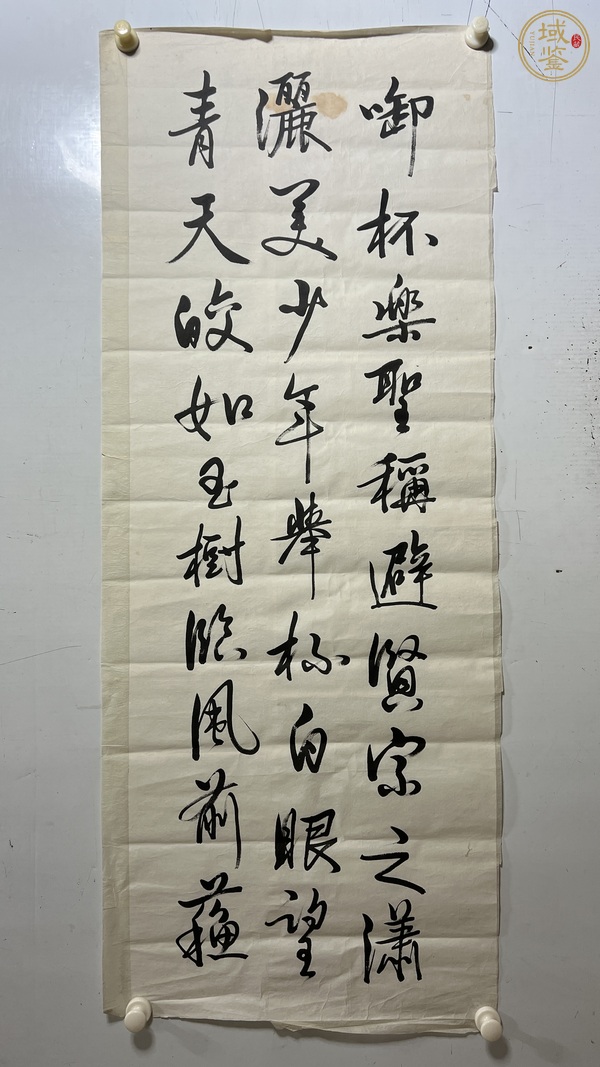 啣杯樂聖稱避賢宗之瀟
灑美少年舉杯白眼望
青天皎如玉樹臨風前蘇
域鉴